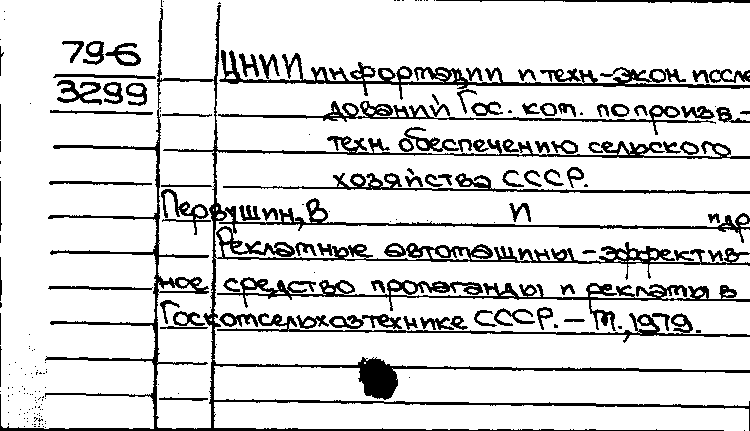 79-6
3299
ЦНИИ информации и техн.-экон. иссле
дований Гос. ком. по произв.-
техн. обеспечению сельского
хозяйства СССР.
Первушин, В и др
Рекламные автомашины - эффектив-
ное средство пропаганды и рекламы в
Госкомсельхозтехнике СССР. - М., 1979.